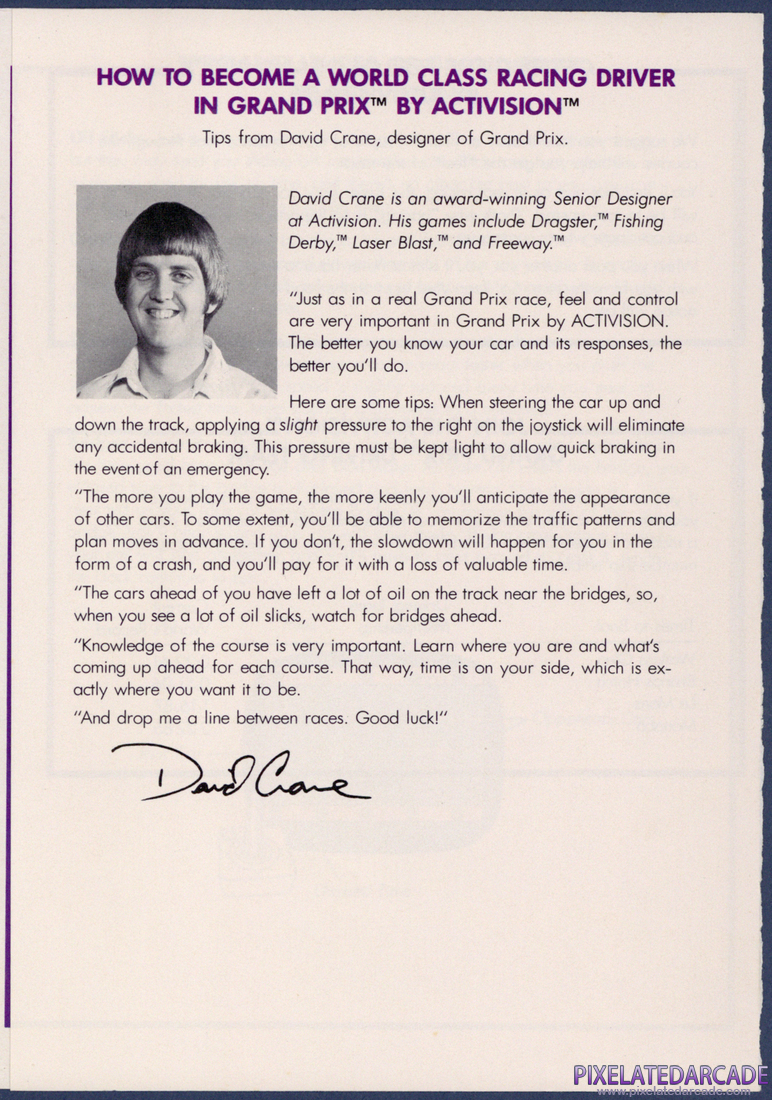 HOW TO BECOME A WORLD CLASS RACING DRIVER
IN GRAND PRIX™ BY ACTIVISION™
Tips from David Crane, designer of Grand Prix.
David Crane is an award-winning Senior Designer
at Activision. His games include Dragster,™ Fishing
Derby,™ Laser Blast,™ and Freeway.™
“Just as in a real Grand Prix race, feel and control
are very important in Grand Prix by ACTIVISION.
The better you know your car and its responses, the
better you’ll do.
Here are some tips: When steering the car up and
down the track, applying a slight pressure to the right on the joystick will eliminate
any accidental braking. This pressure must be kept light to allow quick braking in
the event of an emergency.
“The more you play the game, the more keenly you’ll anticipate the appearance
of other cars. To some extent, you’ll be able to memorize the traffic patterns and
plan moves in advance. If you don’t, the slowdown will happen for you in the
form of a crash, and you’ll pay for it with a loss of valuable time.
“The cars ahead of you have left a lot of oil on the track near the bridges, so,
when you see a lot of oil slicks, watch for bridges ahead.
“Knowledge of the course is very important. Learn where you are and what’s
coming up ahead for each course. That way, time is on your side, which is ex-
actly where you want it to be.
“And drop me a line between races. Good luck!“
David Crane
PIXELATEDARCADE
www.pixelatedarcade.com